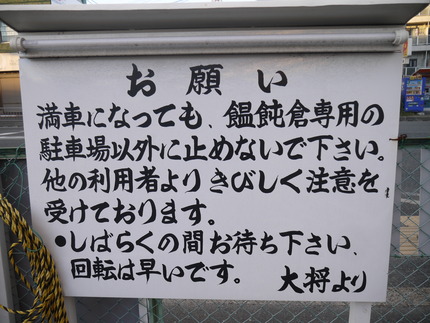 お願い
満車になっても、饂飩倉専用の
駐車場以外に止めないで下さい。
他の利用者よりきびしく注意を
受けております。
●しばらくの間お待ち下さい、
回転は早いです。 大将より